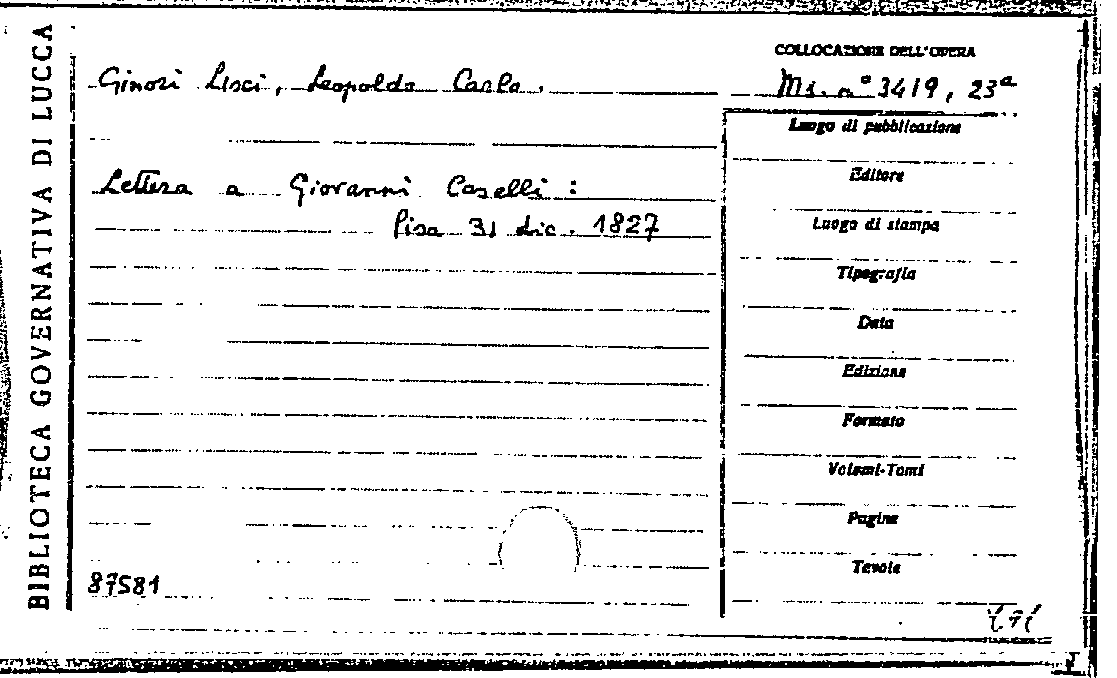 BIBLIOTECA GOVERNATIVA DI LUCCA
COLLOCAZIONE DELL'OPERA
Ginori Lisci, Leopoldo Carlo.
Ms. n° 3419, 23a
Luogo di pubblicazione
Lettera a Giovanni Caselli:
Editore
Pisa 31 dic. 1827
Luogo di stampa
Tipografia
Data
Edizione
Formato
Volumi-Tomi
Pagine
Tavole
87581